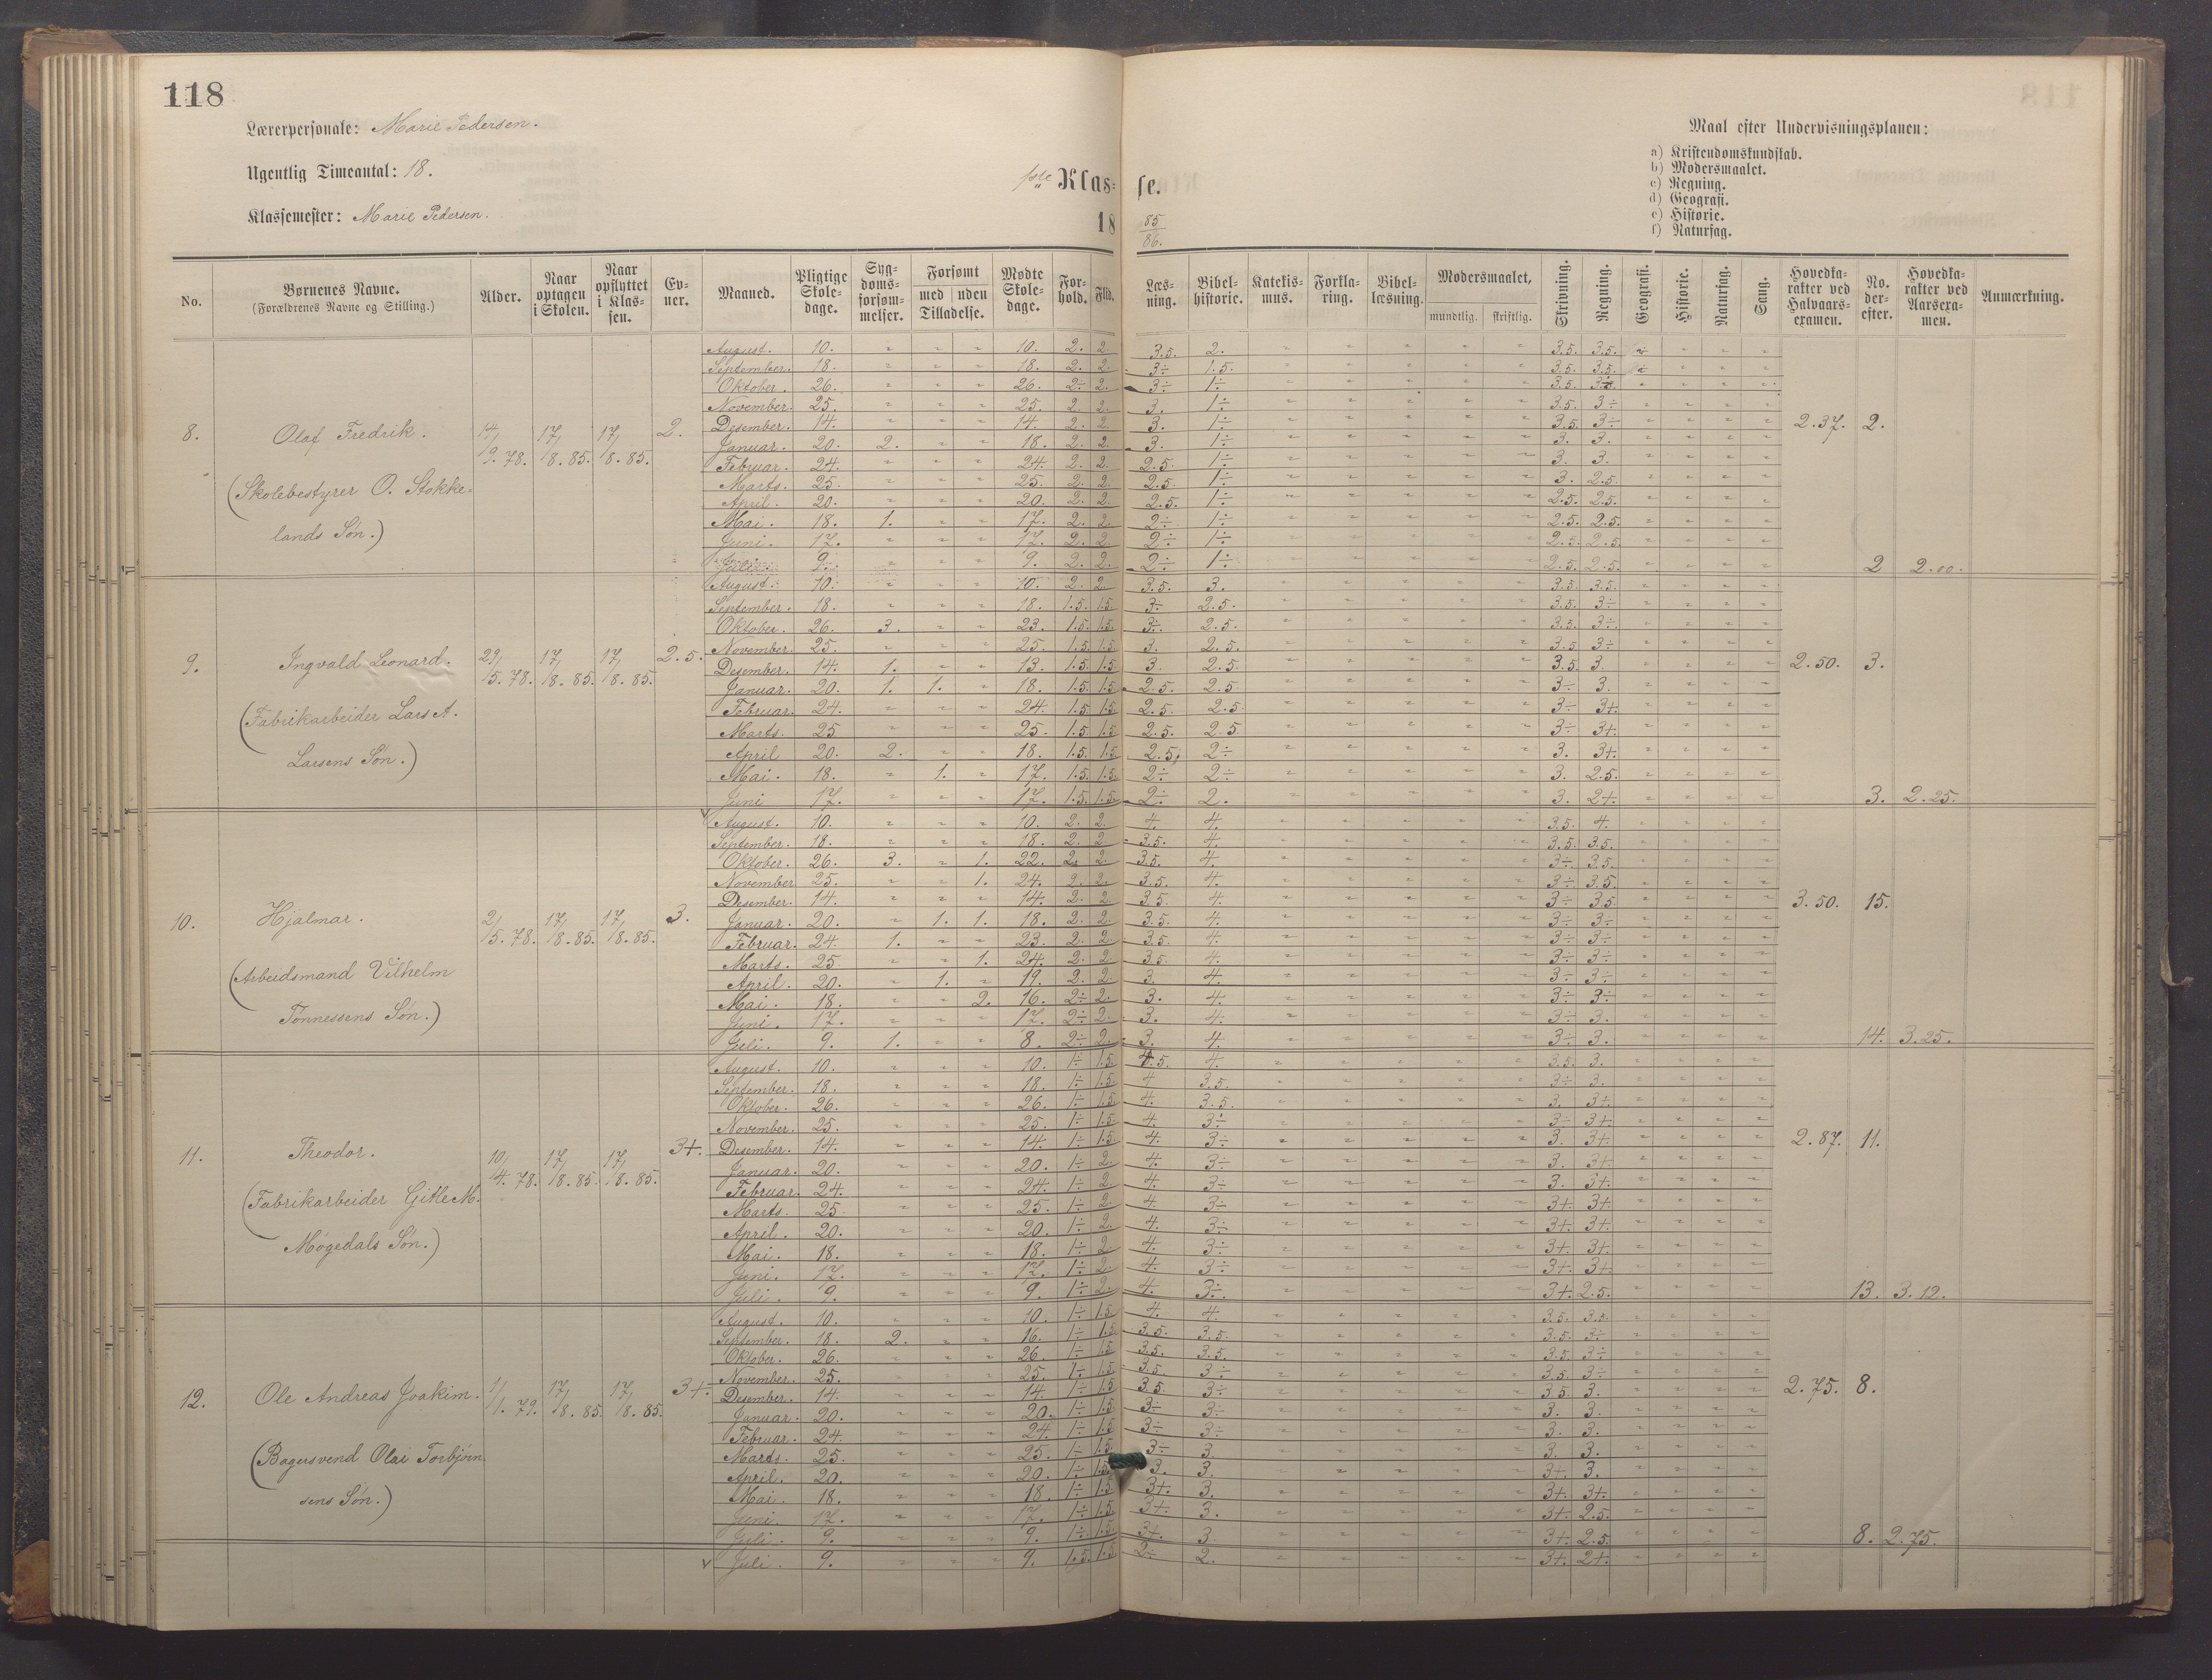 118
Lærerpersonale: Marie Pedersen.
Ugentlig Timeantal: 18.
Klassemester: Marie Pedersen.
1ste Klas-
18
se.
85
86.
Maal efter Undervisningsplanen:
a) Kristendomskundskab.
b) Modersmaalet.
c) Regning.
d) Geografi.
e) Historie.
f) Naturfag.
No. Børnenes Navne. (Forældrenes Navne og Stilling.) Alder. Naar optagen i Skolen. Naar opflyttet i Klassen. Evner. Maaned. Pligtige Skoledage. Sygdomsforsømmelser. Forsømt med uden Tilladelse. Mødte Skoledage. Forhold. Flid. Læsning. Bibelhistorie. Katekismus. Forklaring. Bibellæsning. Modersmaalet, mundtlig. skriftlig. Skrivning. Regning. Geografi. Historie. Naturfag. Sang. Hovedkarakter ved Halvaarsexamen. No. derefter. Hovedkarakter ved Aarsexamen. Anmærkning.
August. 10. " " " 10. 2. 2. 3.5. 2. " " " " " 3.5. 3.5.
September. 18. " " " 18. 2. 2. 3÷ 1.5. " " " " " 3.5. 3.5.
Oktober. 26. " " " 26. 2÷ 2. 3÷ 1÷ " " " " " 3.5.
November. 25. " " " 25. 2. 2. 3. 1÷ " " " " " 3.5. 3÷
8. Olaf Fredrik. 14/9. 78. 17/8. 85. 17/8. 85. 2. Desember. 14. " " " 14. 2. 2. 3. 1÷ " " " " " 3.5. 3÷ " " " " 2.37. 2.
Januar. 20. 2. " " 18. 2. 2. 3. 1÷ " " " " " 3. 3. " " " "
Februar. 24. " " " 24. 2. 2. 2.5. 1÷ " " " " " 3. 3. " " " "
(Skolebestyrer O. Stokke- Marts. 25. " " " 25. 2. 2. 2.5. 1÷ " " " " " 3. 2.5. " " " "
April. 20. " " " 20. 2. 2. 2.5. 1÷ " " " " " 2.5. 2.5. " " " "
Mai. 18. 1. " " 17. 2. 2. 2÷ 1÷ " " " " " 2.5. 2.5. " " " "
lands Søn.) Juni. 17. " " " 17. 2. 2. 2÷ 1÷ " " " " " 2.5. 2.5. " " " "
Juli. 9. " " " 9. 2. 2. 2÷ 1÷ " " " " " 2.5. 2.5. " " " " 2 2.00.
August. 10. " " " 10. 2. 2. 3.5. 3. " " " " " 3.5. 3.5. " " " "
September. 18. " " " 18. 1.5. 1.5. 3÷ 2.5. " " " " " 3.5. 3÷ " " " "
Oktober. 26. 3. " " 23. 1.5. 1.5. 3÷ 2.5. " " " " " 3.5. 3÷ " " " "
November. 25. " " " 25. 1.5. 1.5. 3. 2.5. " " " " " 3.5. 3÷ " " " "
9. Ingvald Leonard. 29/5. 78. 17/8. 85. 17/8. 85. 2.5. Desember. 14. 1. " " 13. 1.5. 1.5. 3. 2.5. " " " " " 3.5. 3. " " " " 2.50. 3.
Januar. 20. 1. 1. " 18. 1.5. 1.5. 2.5. 2.5. " " " " " 3÷ 3. " " " "
(Fabrikarbeider Lars A. Februar. 24. " " " 24. 1.5. 1.5. 2.5. 2.5 " " " " " 3÷ 3+ " " " "
Marts. 25 " " " 25. 1.5. 1.5. 2.5. 2.5 " " " " " 3÷ 3+. " " " "
Larsens Søn.) April 20. 2. " " 18. 1.5. 1.5 2.5. 2÷ " " " " " 3. 3+ " " " "
Mai. 18. " 1. " 17. 1.5. 1.5. 2÷ 2÷ " " " " " 3. 2.5. " " " "
Juni 17. " " " 17. 1.5. 1.5. 2÷ 2. " " " " " 3. 2+. " " " " 3. 2.25.
August. 10. " " " 10. 2. 2. 4. 4. " " " " " 3.5. 4. " " " "
September. 18. " " " 18. 2. 2 3.5. 4. " " " " " 3.5. 3.5. " " " "
Oktober. 26. 3. " 1. 22. 2. 2. 3.5. 4. " " " " " 3÷ 3.5. " " " "
November 25. " " 1. 24. 2. 2. 3.5. 4. " " " " " 3÷ 3.5. " " " "
10. Hjalmar. 2/5. 78. 17/8. 85. 17/8. 85. 3. Desember. 14. " " " 14. 2. 2. 3.5. 4. " " " " " 3÷ 3.5. " " " " 3.50. 15.
Januar. 20. " 1. 1. 18. 2. 2. 3.5. 4. " " " " " 3÷ 3÷ " " " "
Februar. 24. 1. " " 23. 2. 2. 3.5. 4. " " " " " 3÷ 3÷ " " " "
(Arbeidsmand Vilhelm Marts. 25. " " 1. 24. 2. 2. 3.5. 4. " " " " " 3÷ 3÷ " " " "
April. 20. " 1. " 19. 2. 2. 3. 4. " " " " " 3÷ 3÷ " " " "
Mai. 18. " " 2. 16. 2÷ 2. 3. 4. " " " " " 3÷ 3÷ " " " "
Tønnessens Søn.) Juni. 17. " " " 17. 2÷ 2. 3. 4. " " " " " 3÷ 3. " " " "
Juli. 9. 1. " " 8. 2÷ 2. 3. 4. " " " " " 3÷ 3. " " " " 14. 3.25.
August. 10. " " " 10. 1÷ 1.5. 4.5. 4. " " " " " 3.5. 3. " " " "
September. 18. " " " 18. 1÷ 1.5. 4 3.5. " " " " " 3÷ 3. " " " "
Oktober. 26. " " " 26. 1÷ 1.5. 4. 3.5. " " " " " 3. 3+. " " " "
November. 25. " " " 25. 1÷ 1.5 4. 3÷ " " " " " 3÷ 3+. " " " "
11. Theodor. 10/4. 78. 17/8. 85. 17/8. 85. 3+. Desember. 14. " " " 14. 1÷ 1.5 4. 3÷ " " " " " 3. 3+. " " " " 2.87. 11.
Januar. 20. " " " 20. 1÷ 2. 4. 3÷ " " " " " 3. 3+. " " " "
(Fabrikarbeider Gitle M. Februar. 24. " " " 24. 1÷ 2. 4. 3÷ " " " " " 3. 3+. " " " "
Marts. 25. " " " 25. 1÷ 2. 4. 3÷ " " " " " 3+. 3+. " " " "
April. 20. " " " 20. 1÷ 2. 4. 3÷ " " " " " 3+. 3+. " " " "
Møgedals Søn.) Mai. 18. " " " 18. 1÷ 2. 4. 3÷ " " " " " 3+. 3+. " " " "
Juni. 17. " " " 17. 1÷ 2. 4. 3÷ " " " " " 3+. 3+. " " " "
Juli. 9. " " " 9. 1÷ 2. 4. 3÷ " " " " " 3+. 2.5. " " " " 13. 3.12.
August. 10. " " " 10. 1÷ 1.5 4. 4. " " " " " 3.5. 3.5. " " " "
September. 18. 2. " " 16. 1÷ 1.5. 3.5. 3.5. " " " " " 3.5. 3÷ " " " "
Oktober. 26. " " " 26. 1÷ 1.5 3.5. 3.5. " " " " " 3.5. 3÷ " " " "
November. 25. " " " 25. 1÷ 1.5. 3.5. 3÷ " " " " " 3.5. 3÷ " " " "
12. Ole Andreas Joakim. 1/1. 79. 17/8. 85. 17/8. 85. 3+. Desember. 14. " " " 14. 1÷ 1.5 3.5. 3÷ " " " " " 3.5. 3. " " " " 2.75. 8.
Januar. 20. " " " 20. 1÷ 1.5 3÷ 3÷ " " " " " 3. 3. " " " "
Februar. 24. " " " 24. 1÷ 1.5 3÷ 3÷ " " " " " 3. 3. " " " "
(Bagersvend Olai Torbjørn- Marts. 25. " " " 25. 1÷ 1.5. 3÷ 3. " " " " " 3. 3. " " " "
April. 20. " " " 20. 1÷ 1.5 3. 3. " " " " " 3+. 3. " " " "
sens Søn.) Mai. 18. " " " 18. 1÷ 1.5 3+. 3. " " " " " 3+. 3+. " " " "
Juni. 17. " " " 17. 1÷ 1.5. 3+. 3. " " " " " 3+. 2.5. " " " "
Juli. 9. " " " 9. 1÷ 1.5. 3+. 3 " " " " " 3+. 2.5. " " " " 8. 2.75.
v Juli. 9. " " " 9. 1.5. 1.5. 2÷ 2. " " " " " 3+. 2+. " " " "